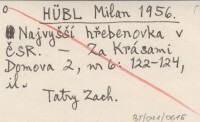 HÜBL Milan 1956.
Nejvyšší hřebenovka v
ČSR. — Za Krásami
Domova 2, nr 6: 122-124,
il.
Tatry Zach.
BT/011/0615